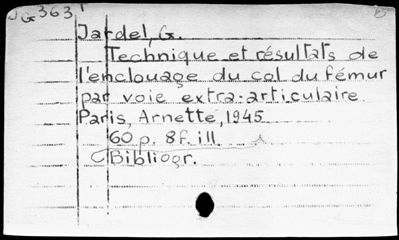 G 363
Jardel, G.
Technique et résultats de
l'enclouage du col du fémur
par voie extra-articulaire.
Paris, Arnette, 1945
60 p. 8 f. ill.
(Bibliogr.